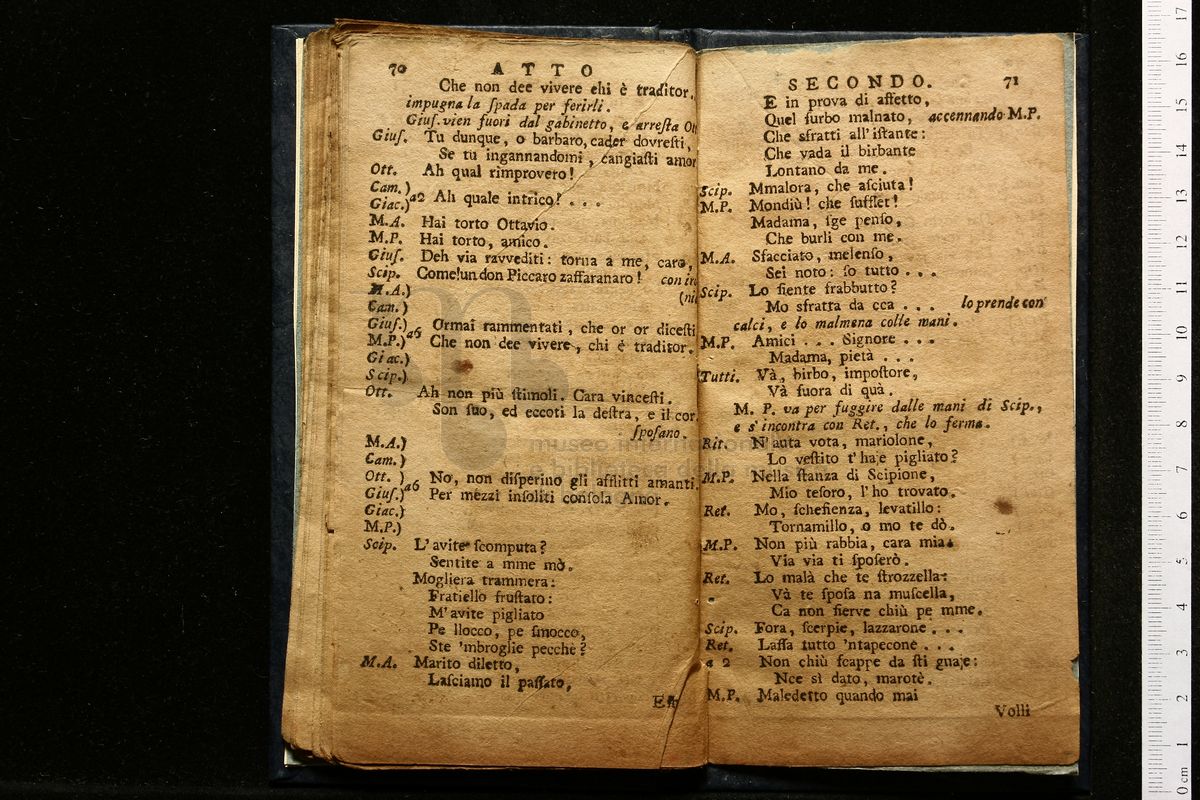 70 ATTO
Che non dee vivere chi è traditor.
impugna la ſpada per ferirli.
Giuſ. vien fuori dal gabinetto, e arreſta Ott
Giuſ. Tu dunque, o barbaro, cader dovreſti,
Se tu ingannandomi, cangiaſti amor
Ott. Ah qual rimprovero!
Cam.)
Giac.) a2 Ah quale intrico! . . .
M.A. Hai torto Ottavio.
M.P. Hai torto, amico.
Giuſ. Deh via ravvediti: torna a me, caro,
Scip. Come! un don Piccaro zaffaranaro! con iro
(ni
M.A.)
Cam.)
Giuſ.) a6 Ormai rammentati, che or or diceſti
M.P.) Che non dee vivere, chi è traditor.
Giac.)
Scip.)
Ott. Ah non più ſtimoli. Cara vinceſti.
Son ſuo, ed eccoti la deſtra, e il cor.
ſpoſano.
M.A.)
Cam.)
Ott. ) a6 No, non diſperino gli afflitti amanti.
Giuſ.) Per mezzi inſoliti conſola Amor.
Giac.)
M.P.)
Scip. L'avite ſcomputa?
Sentite a mme mò.
Mogliera trammera:
Fratiello fruſtato:
M'avite pigliato
Pe llocco, pe ſmocco,
Ste 'mbroglie pecchè?
M.A. Marito diletto,
Laſciamo il paſſato,
SECONDO. 71
E in prova di affetto,
Quel furbo malnato, accennando M.P.
Che sfratti all'iſtante:
Che vada il birbante
Lontano da me.
Scip. Mmalora, che aſciuta!
M.P. Mondiù! che ſufflet!
Madama, ſge penſo,
Che burli con me.
M.A. Sfacciato, melenſo,
Sei noto: ſo tutto . . .
Scip. Lo ſiente frabbutto?
Mo sfratta da cca . . . lo prende con
calci, e lo malmena colle mani.
M.P. Amici . . . Signore . . .
Madama, pietà . . .
Tutti. Và, birbo, impoſtore,
Và fuora di quà.
M. P. va per fuggire dalle mani di Scip.,
e s'incontra con Ret., che lo ferma.
Rit. N'auta vota, mariolone,
Lo veſtito t'haje pigliato?
M.P. Nella ſtanza di Scipione,
Mio teſoro, l'ho trovato.
Ret. Mo, ſchefienza, levatillo:
Tornamillo, o mo te dò.
M.P. Non più rabbia, cara mia:
Via via ti ſpoſerò.
Ret. Lo malà che te ſtrozzella:
Và te ſpoſa na muſcella,
Ca non ſierve chiù pe mme.
Scip. Fora, ſcerpie, lazzarone . . .
Ret. Laſſa tutto 'ntapecone . . .
a 2 Non chiù ſcappe da ſti guaje:
Nce sì dato, marotè.
M.P. Maledetto quando mai
Volli